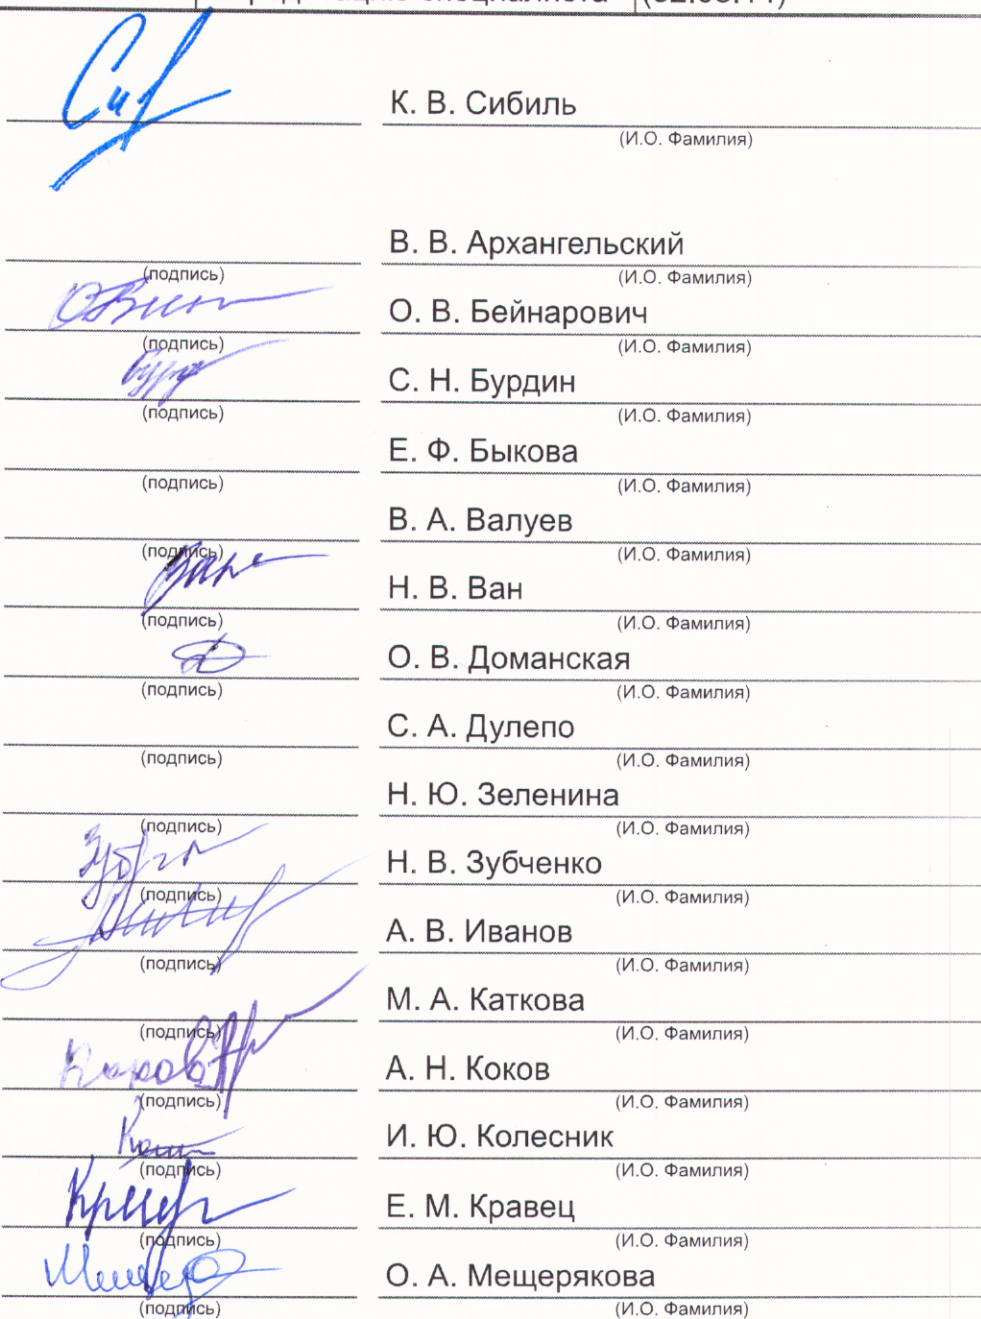 специалиста
К. В. Сибиль
(И.О. Фамилия)
В. В. Архангельский
(подпись) (И.О. Фамилия)
О. В. Бейнарович
(подпись) (И.О. Фамилия)
С. Н. Бурдин
(подпись) (И.О. Фамилия)
Е. Ф. Быкова
(подпись) (И.О. Фамилия)
В. А. Валуев
(подпись) (И.О. Фамилия)
Н. В. Ван
(подпись) (И.О. Фамилия)
О. В. Доманская
(подпись) (И.О. Фамилия)
С. А. Дулепо
(подпись) (И.О. Фамилия)
Н. Ю. Зеленина
(подпись) (И.О. Фамилия)
Н. В. Зубченко
(подпись) (И.О. Фамилия)
А. В. Иванов
(подпись) (И.О. Фамилия)
М. А. Каткова
(подпись) (И.О. Фамилия)
А. Н. Коков
(подпись) (И.О. Фамилия)
И. Ю. Колесник
(подпись) (И.О. Фамилия)
Е. М. Кравец
(подпись) (И.О. Фамилия)
О. А. Мещерякова
(подпись) (И.О. Фамилия)